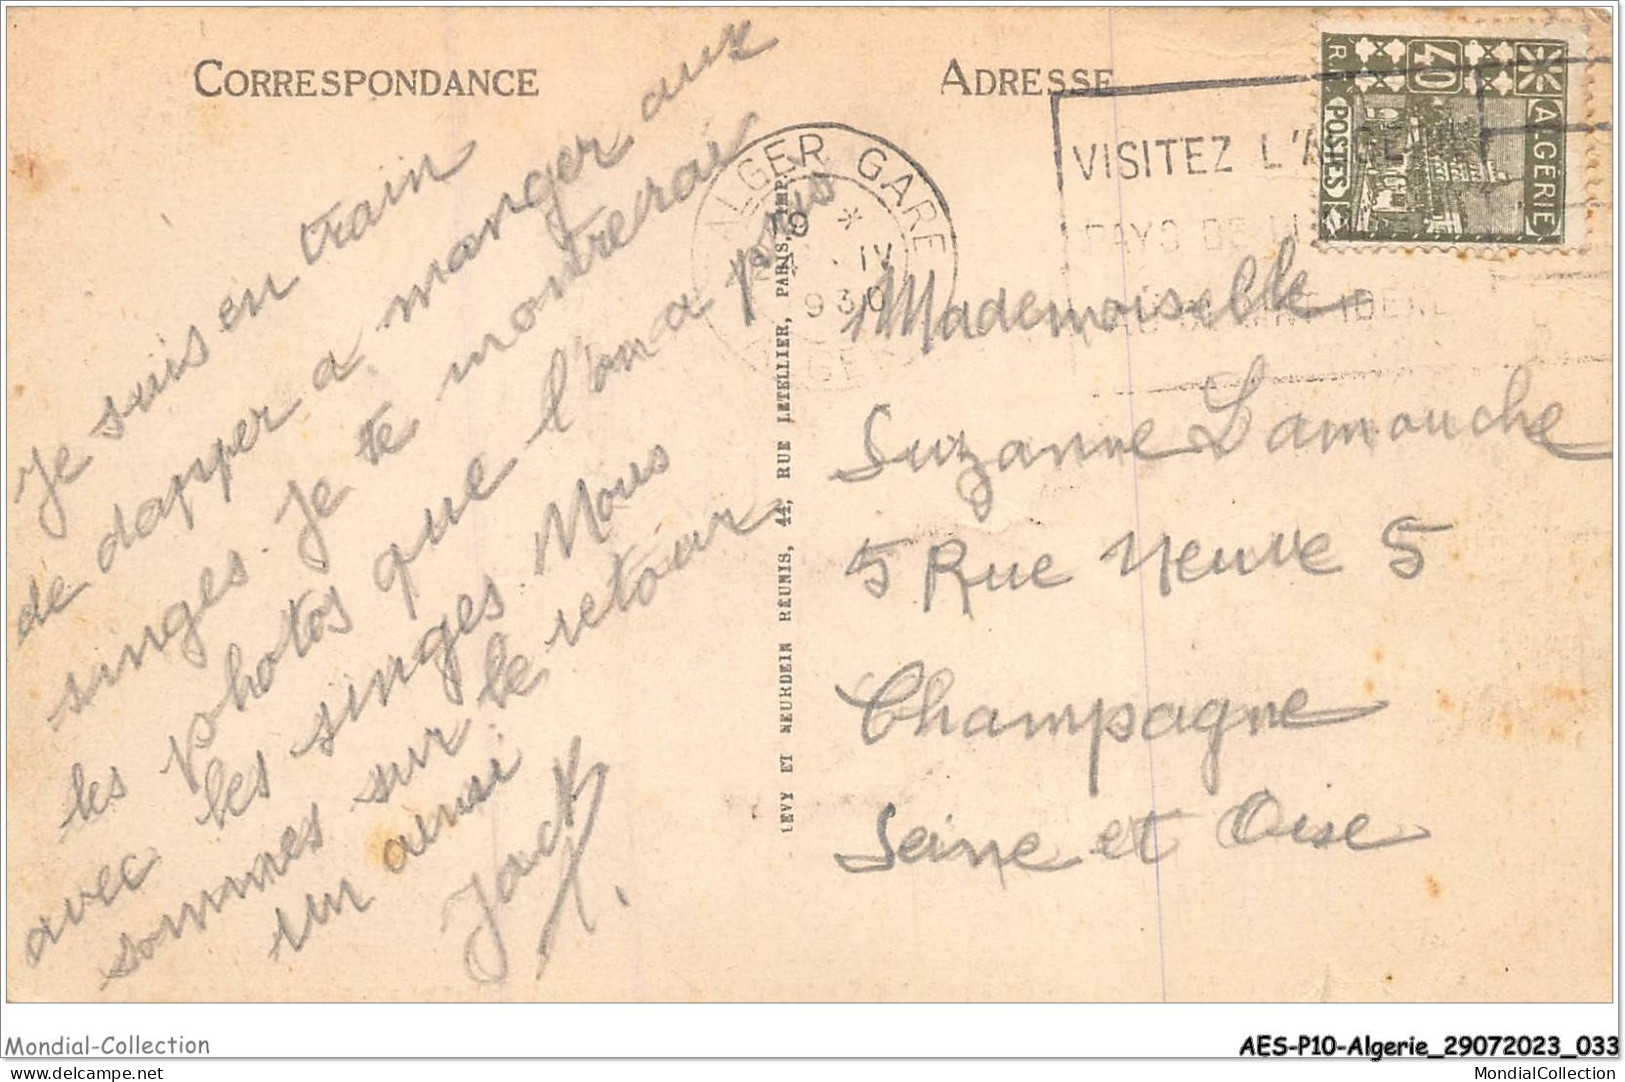 CORRESPONDANCE
ADRESSE
Je suis en train
de dapper a manger aux
singes. Je te montrerai
les photos que l'on a pris
avec les singes. Nous
sommes sur le retour
un ausi.
Jack
LEVY ET NEURDEIN RÉUNIS, 44, RUE LETELLIER, PARIS, IMP.
ALGER GARE
8 *
IV
930
ALGER
VISITEZ L'ALGERIE
PAYS DE
ALGÉRIE
POSTES
40
R.
Mademoiselle
Suzanne Lamouche
5 Rue Neuve 5
Champagne
Seine et Oise
Mondial-Collection
AES-P10-Algerie_29072023_033
MondialCollection
delcampe.net